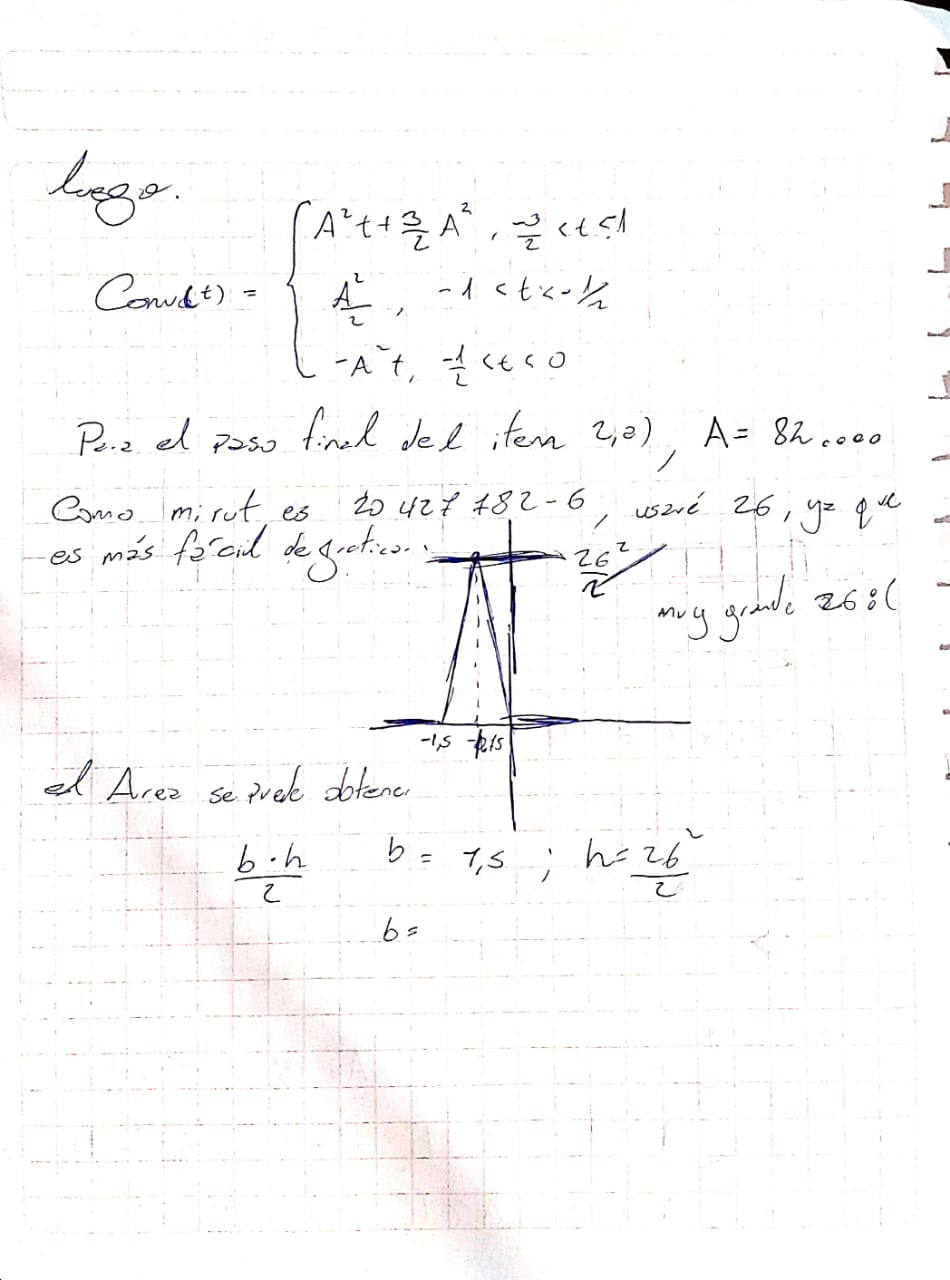 luego.
A²t + 3/2 A² , -3/2 < t ≤ 1
Conv(t) = { A²/2 , -1 < t < -1/2
-A²t, -1/2 < t < 0
Para el paso final del item 2,a), A = 82....
Como mi rut es 20 427 182-6, usaré 26, ya que
es más fácil de graficar.
26²/2
muy grande 26 :(
-1,5
el Area se puede obtener
b·h/2 b = 1,5 ; h = 26²/2
b =